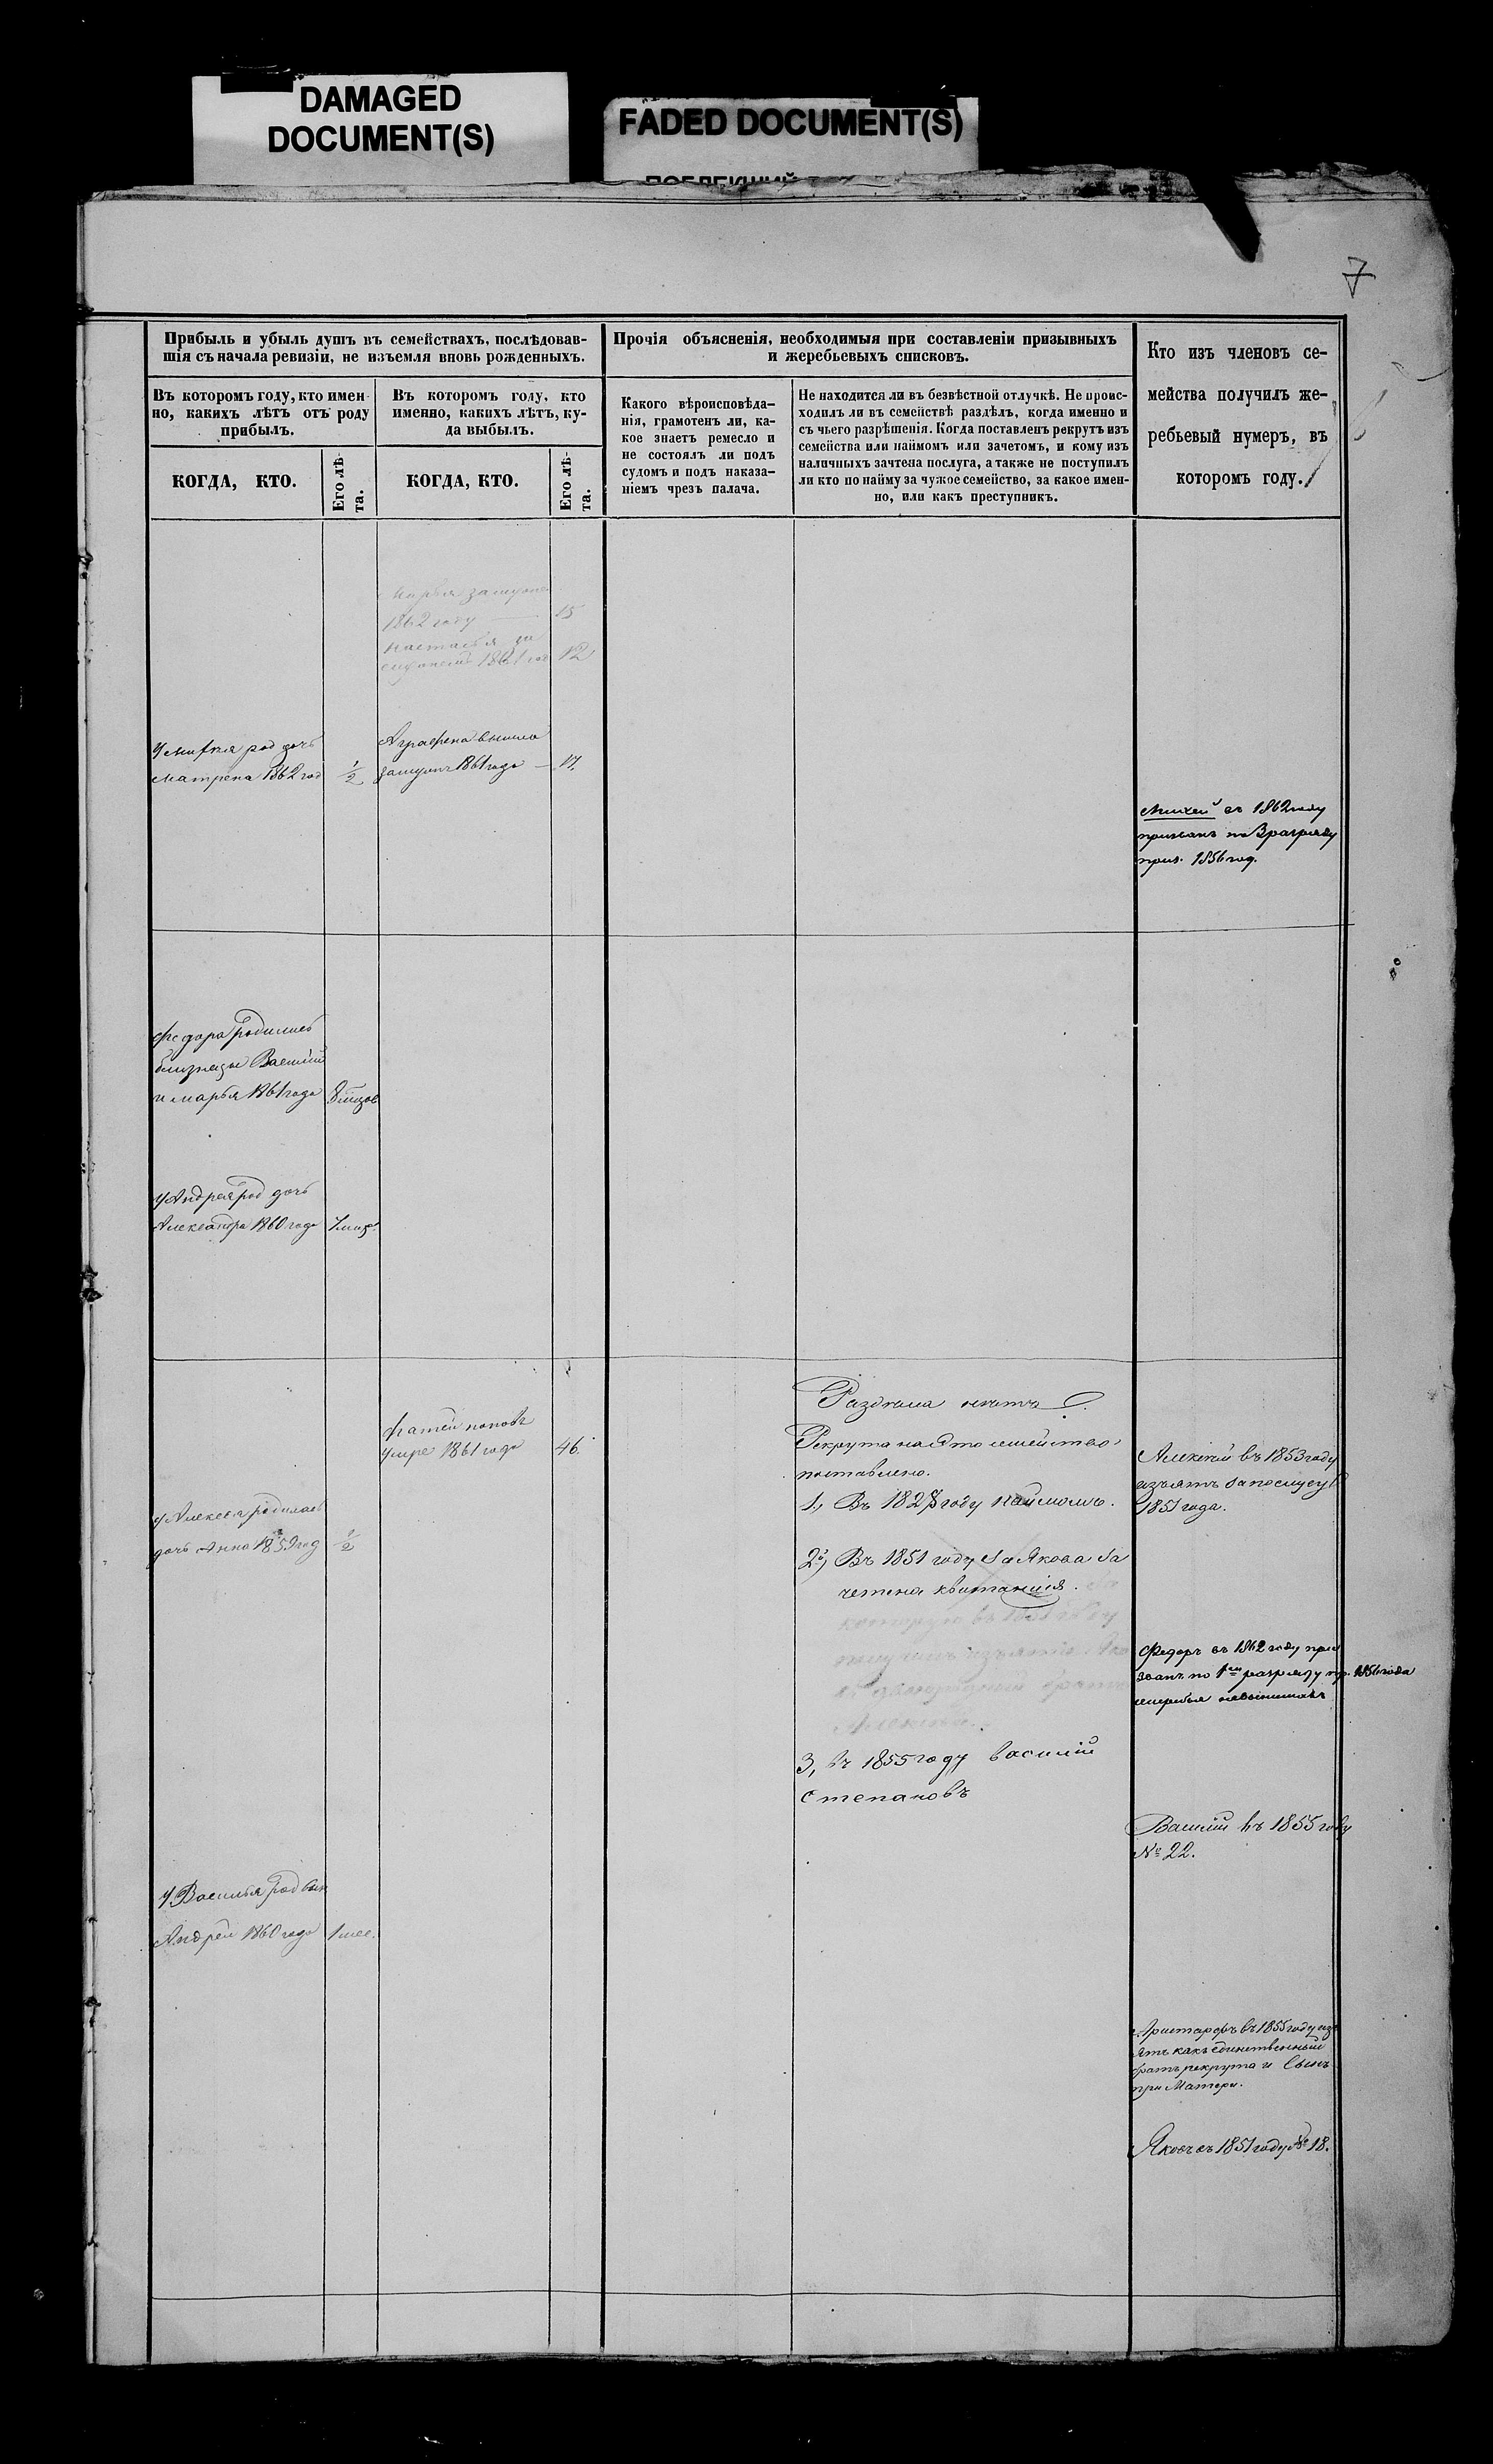 DAMAGED
DOCUMENT(S)
FADED DOCUMENT(S)
7
Прибыль и убыль душъ въ семействахъ, послѣдовав-
шія съ начала ревизіи, не изъемля вновь рожденныхъ.
Прочія объясненія, необходимыя при составленіи призывныхъ
и жеребьевыхъ списковъ.
Кто изъ членовъ се-
мейства получилъ же-
ребьевый нумеръ, въ
которомъ году.
Въ которомъ году, кто имен-
но, какихъ лѣтъ отъ роду
прибылъ.
Въ которомъ году, кто
именно, какихъ лѣтъ, ку-
да выбылъ.
Какого вѣроисповѣда-
нія, грамотенъ ли, ка-
кое знаетъ ремесло и
не состоялъ ли подъ
судомъ и подъ наказа-
ніемъ чрезъ палача.
Не находится ли въ безвѣстной отлучкѣ. Не проис-
ходилъ ли въ семействѣ раздѣлъ, когда именно и
съ чьего разрѣшенія. Когда поставленъ рекрутъ изъ
семейства или наймомъ или зачетомъ, и кому изъ
наличныхъ зачтена послуга, а также не поступилъ
ли кто по найму за чужое семейство, за какое имен-
но, или какъ преступникъ.
КОГДА, КТО.
Его лѣ-
та.
КОГДА, КТО.
Его лѣ-
та.
Марья
1862 году — 15
Настасья за
1861 12
Аграфена вышла
замужъ 1861 года — 17.
у род дочь
Матрена 1862 год ½
Михей въ 1862 году
призванъ по 3 разряду
приз. 1856 год.
Федора родились
близнецы Василій
и Марья 1861 года 8
у Андрея род дочь
Александра 1860 года 7
Раздела нетъ.
умре 1861 года 46
Рекрута на это семейство
поставлено.
1., Въ году наймомъ.
Алексей въ 1853 году
изъятъ за послугу
1851 года.
у Алексея родилась
дочь Анна 1859 год ½
2е, Въ 1851 году за Якова за
чтена квитанція.
Федоръ въ 1862 году при
званъ по 1му разряду пр. 1856 года
жеребья
3, въ 1855 году Василій
Степановъ
Василій въ 1855 году
№ 22.
у Василья род сын
Андрей 1860 года 1 мес.
Аристархъ въ 1855 году изъ
ятъ какъ единственный
братъ рекрута и сынъ
при Матери.
Яковъ въ 1851 году № 18.